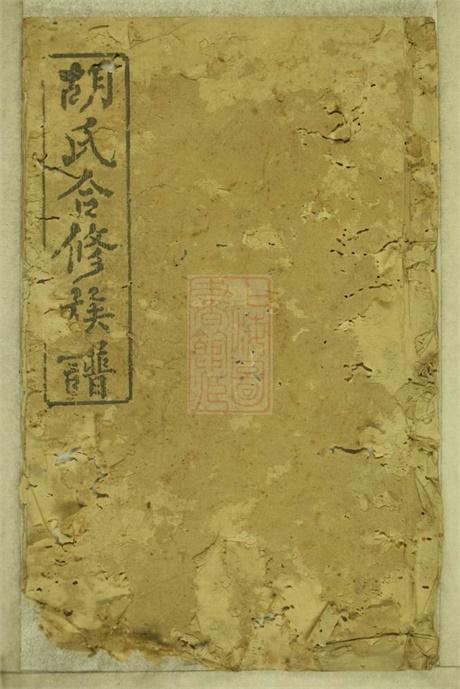 胡氏合修族譜
上海圖
書館藏